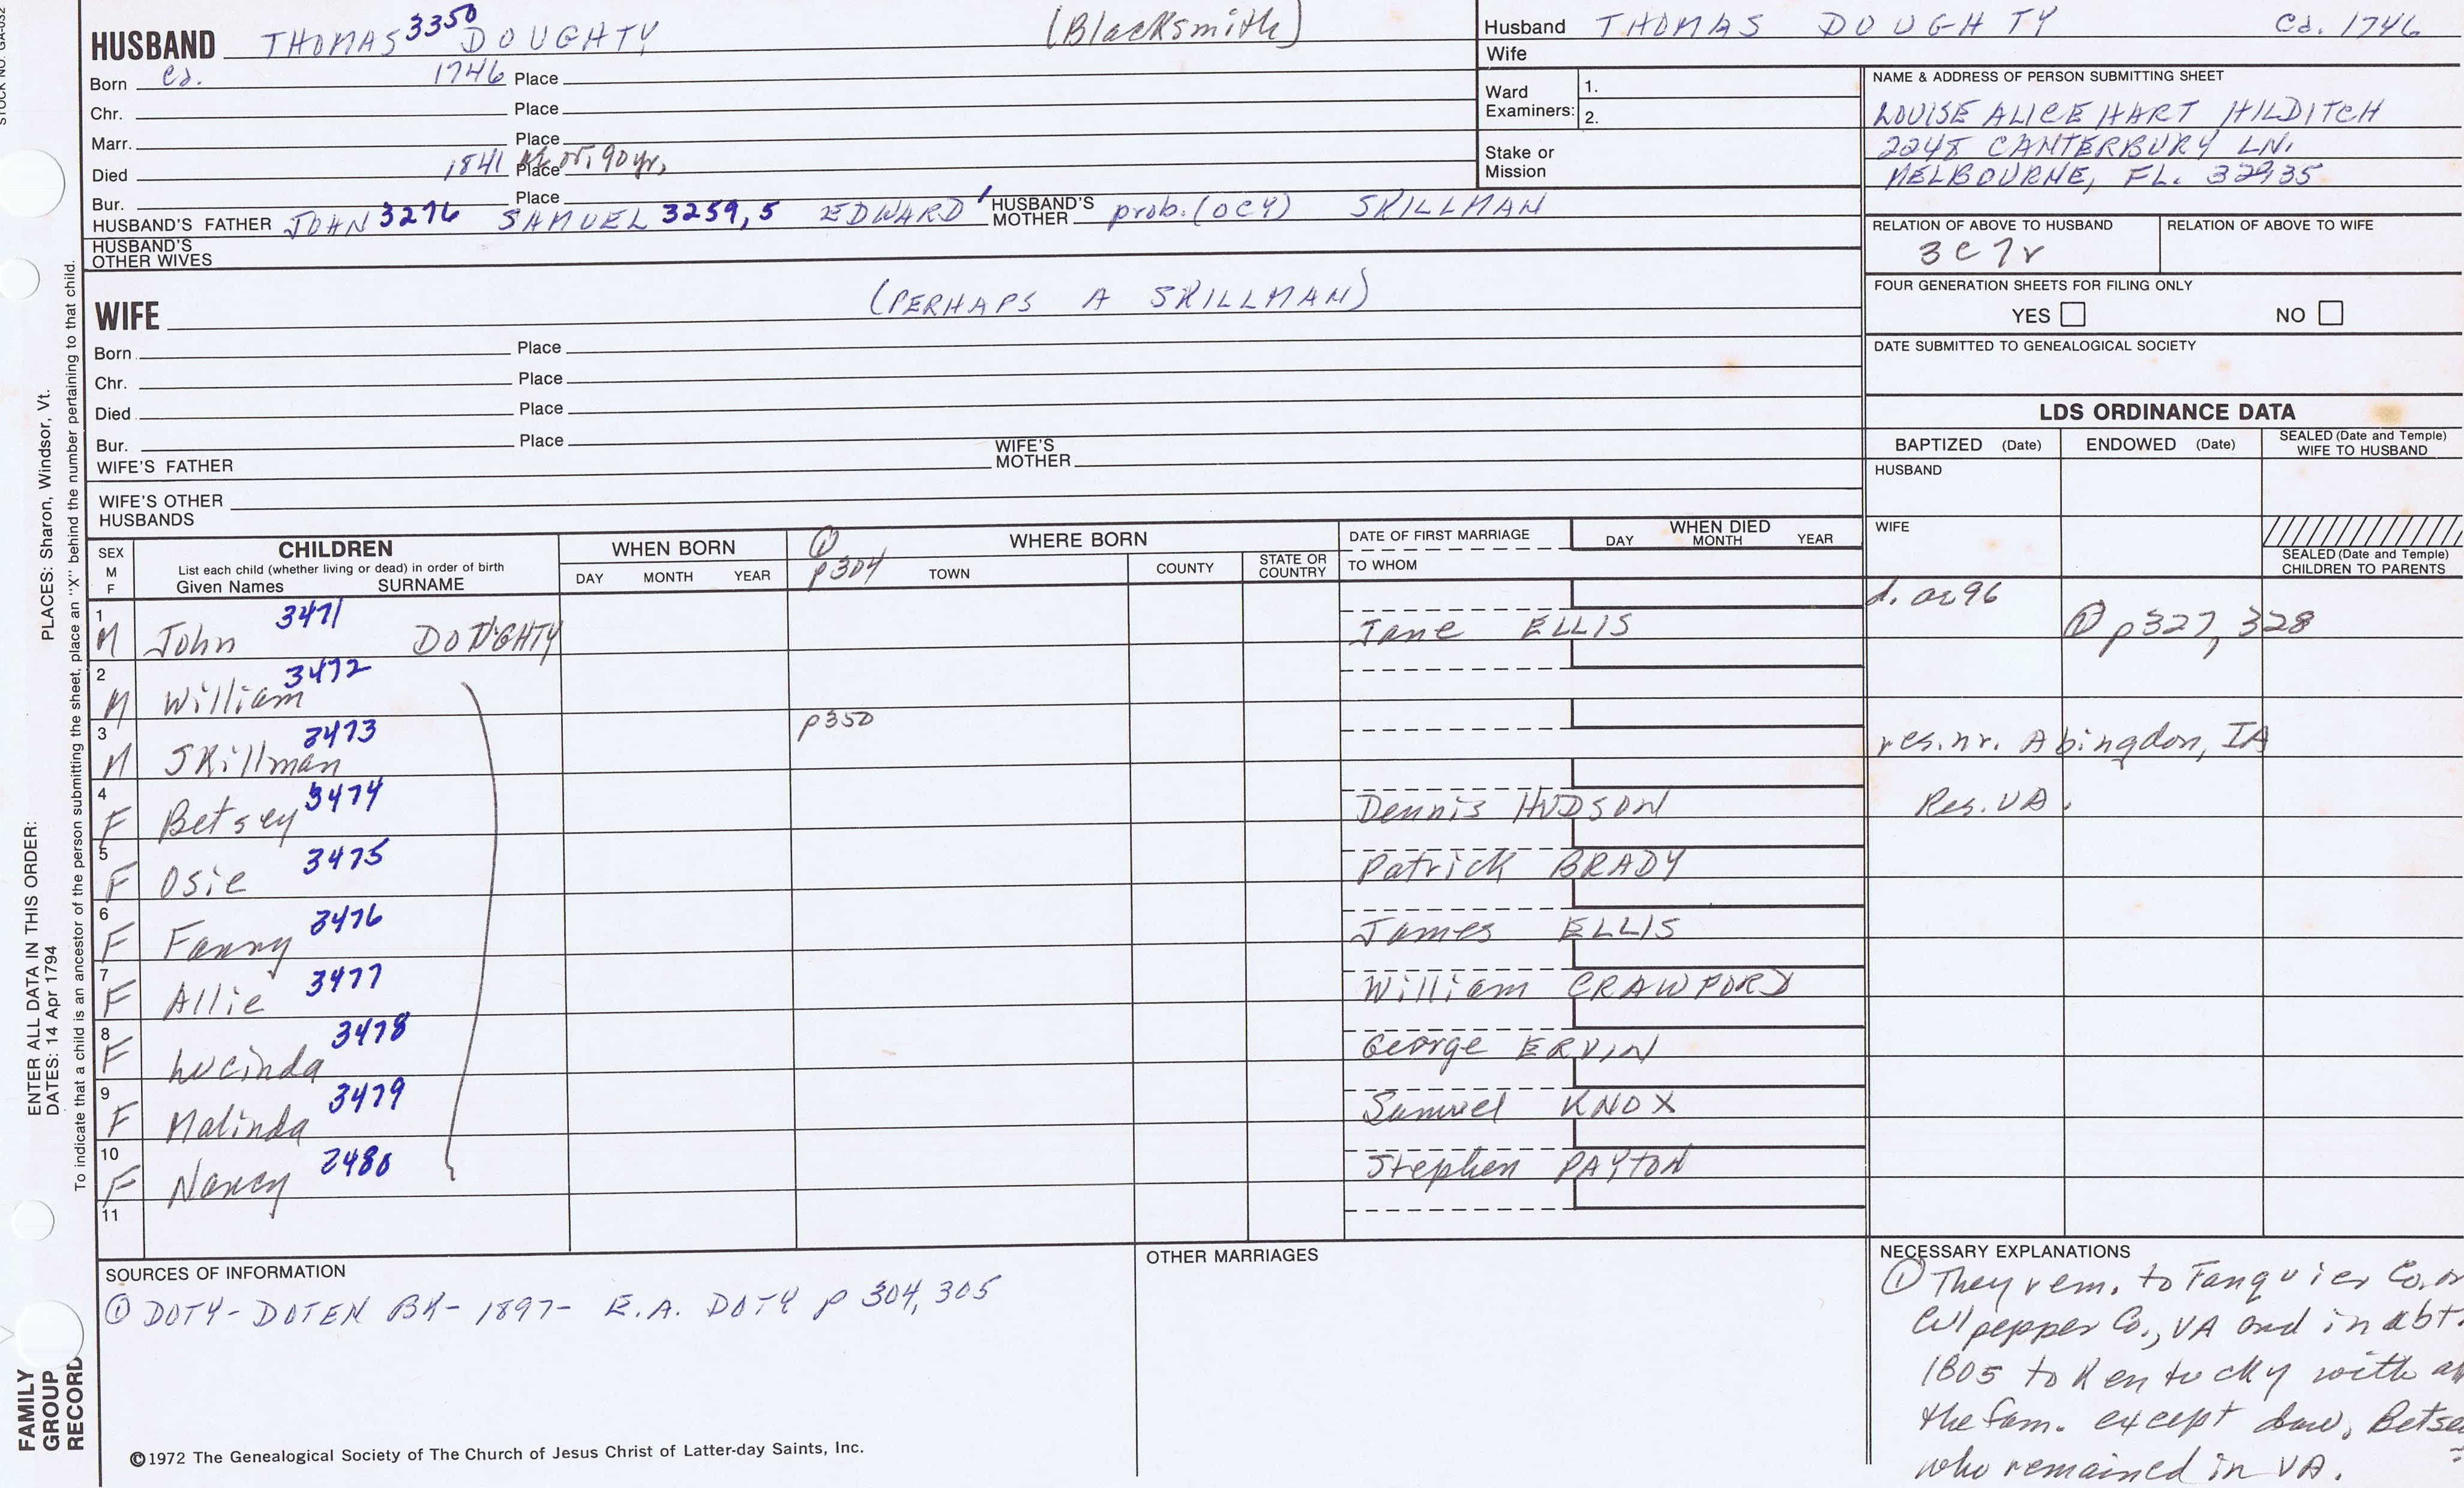 STOCK NO. GA-032
HUSBAND THOMAS 3350 DOUGHTY (Blacksmith)
Born Ca. 1746 Place
Chr. Place
Marr. Place
Died 1841 Place 90 yr,
Bur. Place
HUSBAND'S FATHER JOHN 3276 SAMUEL 3259,5 EDWARD ' HUSBAND'S MOTHER prob. (OCY) SKILLMAN
HUSBAND'S OTHER WIVES
WIFE (PERHAPS A SKILLMAN)
Born Place
Chr. Place
Died Place
Bur. Place
WIFE'S FATHER WIFE'S MOTHER
WIFE'S OTHER HUSBANDS
Husband THOMAS DOUGHTY Ca. 1746
Wife
Ward Examiners: 1.
2.
Stake or Mission
NAME & ADDRESS OF PERSON SUBMITTING SHEET
LOUISE ALICE HART HILDITCH
2248 CANTERBURY LN.
MELBOURNE, FL. 32935
RELATION OF ABOVE TO HUSBAND RELATION OF ABOVE TO WIFE
3c7r
FOUR GENERATION SHEETS FOR FILING ONLY
YES NO
DATE SUBMITTED TO GENEALOGICAL SOCIETY
LDS ORDINANCE DATA
BAPTIZED (Date) ENDOWED (Date) SEALED (Date and Temple) WIFE TO HUSBAND
HUSBAND
WIFE
SEALED (Date and Temple) CHILDREN TO PARENTS
SEX M F CHILDREN WHEN BORN ① p304 WHERE BORN DATE OF FIRST MARRIAGE WHEN DIED
List each child (whether living or dead) in order of birth
Given Names SURNAME DAY MONTH YEAR TOWN COUNTY STATE OR COUNTRY TO WHOM DAY MONTH YEAR
1 M John 3471 DOUGHTY Jane ELLIS d. ae 96 ① p327, 328
2 M William 3472
3 M Skillman 3473 p350 res. nr. Abingdon, IA
4 F Betsey 3474 Dennis HUDSON Res. VA.
5 F Osie 3475 Patrick BRADY
6 F Fanny 3476 James ELLIS
7 F Allie 3477 William CRAWFORD
8 F Lucinda 3478 George ERVIN
9 F Malinda 3479 Samuel KNOX
10 F Nancy 3480 Stephen PAYTON
11
SOURCES OF INFORMATION
① DOTY-DOTEN BK-1897- E.A. DOTY p 304, 305
OTHER MARRIAGES
NECESSARY EXPLANATIONS
① They rem. to Fanquier Co, or
Culpepper Co., VA and in abt.
1805 to Kentucky with
the fam. except dau, Betsey
who remained in VA.
©1972 The Genealogical Society of The Church of Jesus Christ of Latter-day Saints, Inc.
ENTER ALL DATA IN THIS ORDER:
DATES: 14 Apr 1794 PLACES: Sharon, Windsor, Vt.
To indicate that a child is an ancestor of the person submitting the sheet, place an "X" behind the number pertaining to that child.
FAMILY
GROUP
RECORD